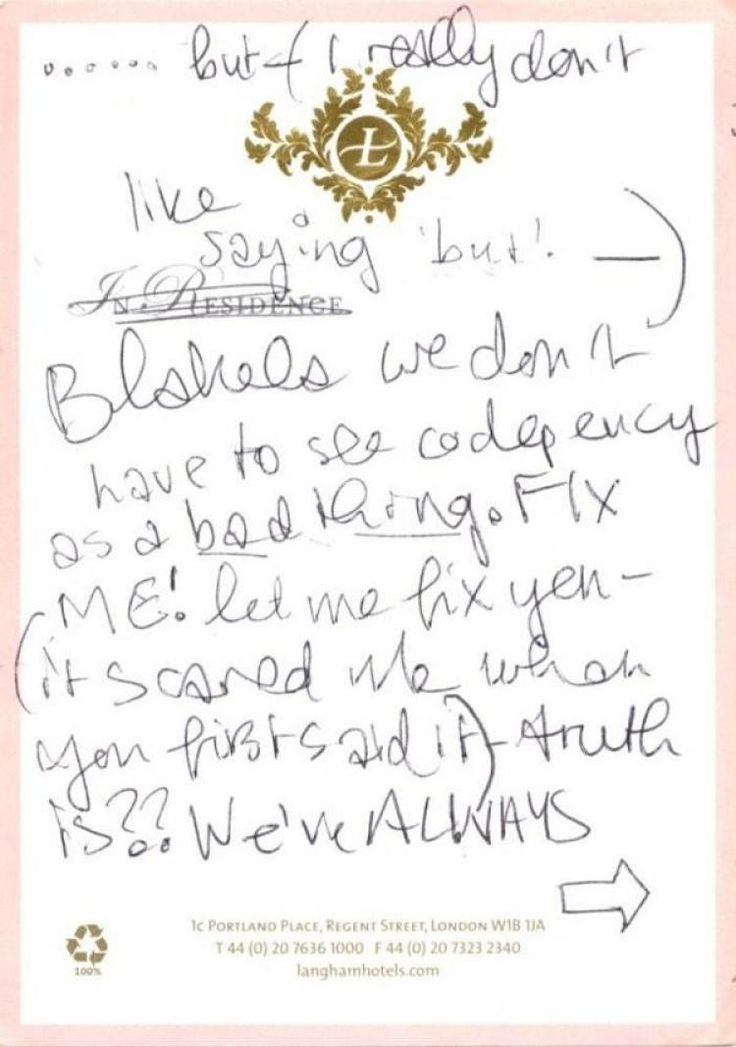 ...... but (I really don't
L
like
saying 'but'. —)
IN RESIDENCE
Blakels we don't
have to see codepency
as a bad thing. FIX
ME! let me fix you –
(it scared me when
you first said it) – truth
is?? We've ALWAYS
1C PORTLAND PLACE, REGENT STREET, LONDON W1B 1JA
T 44 (0) 20 7636 1000 F 44 (0) 20 7323 2340
langhamhotels.com
100%